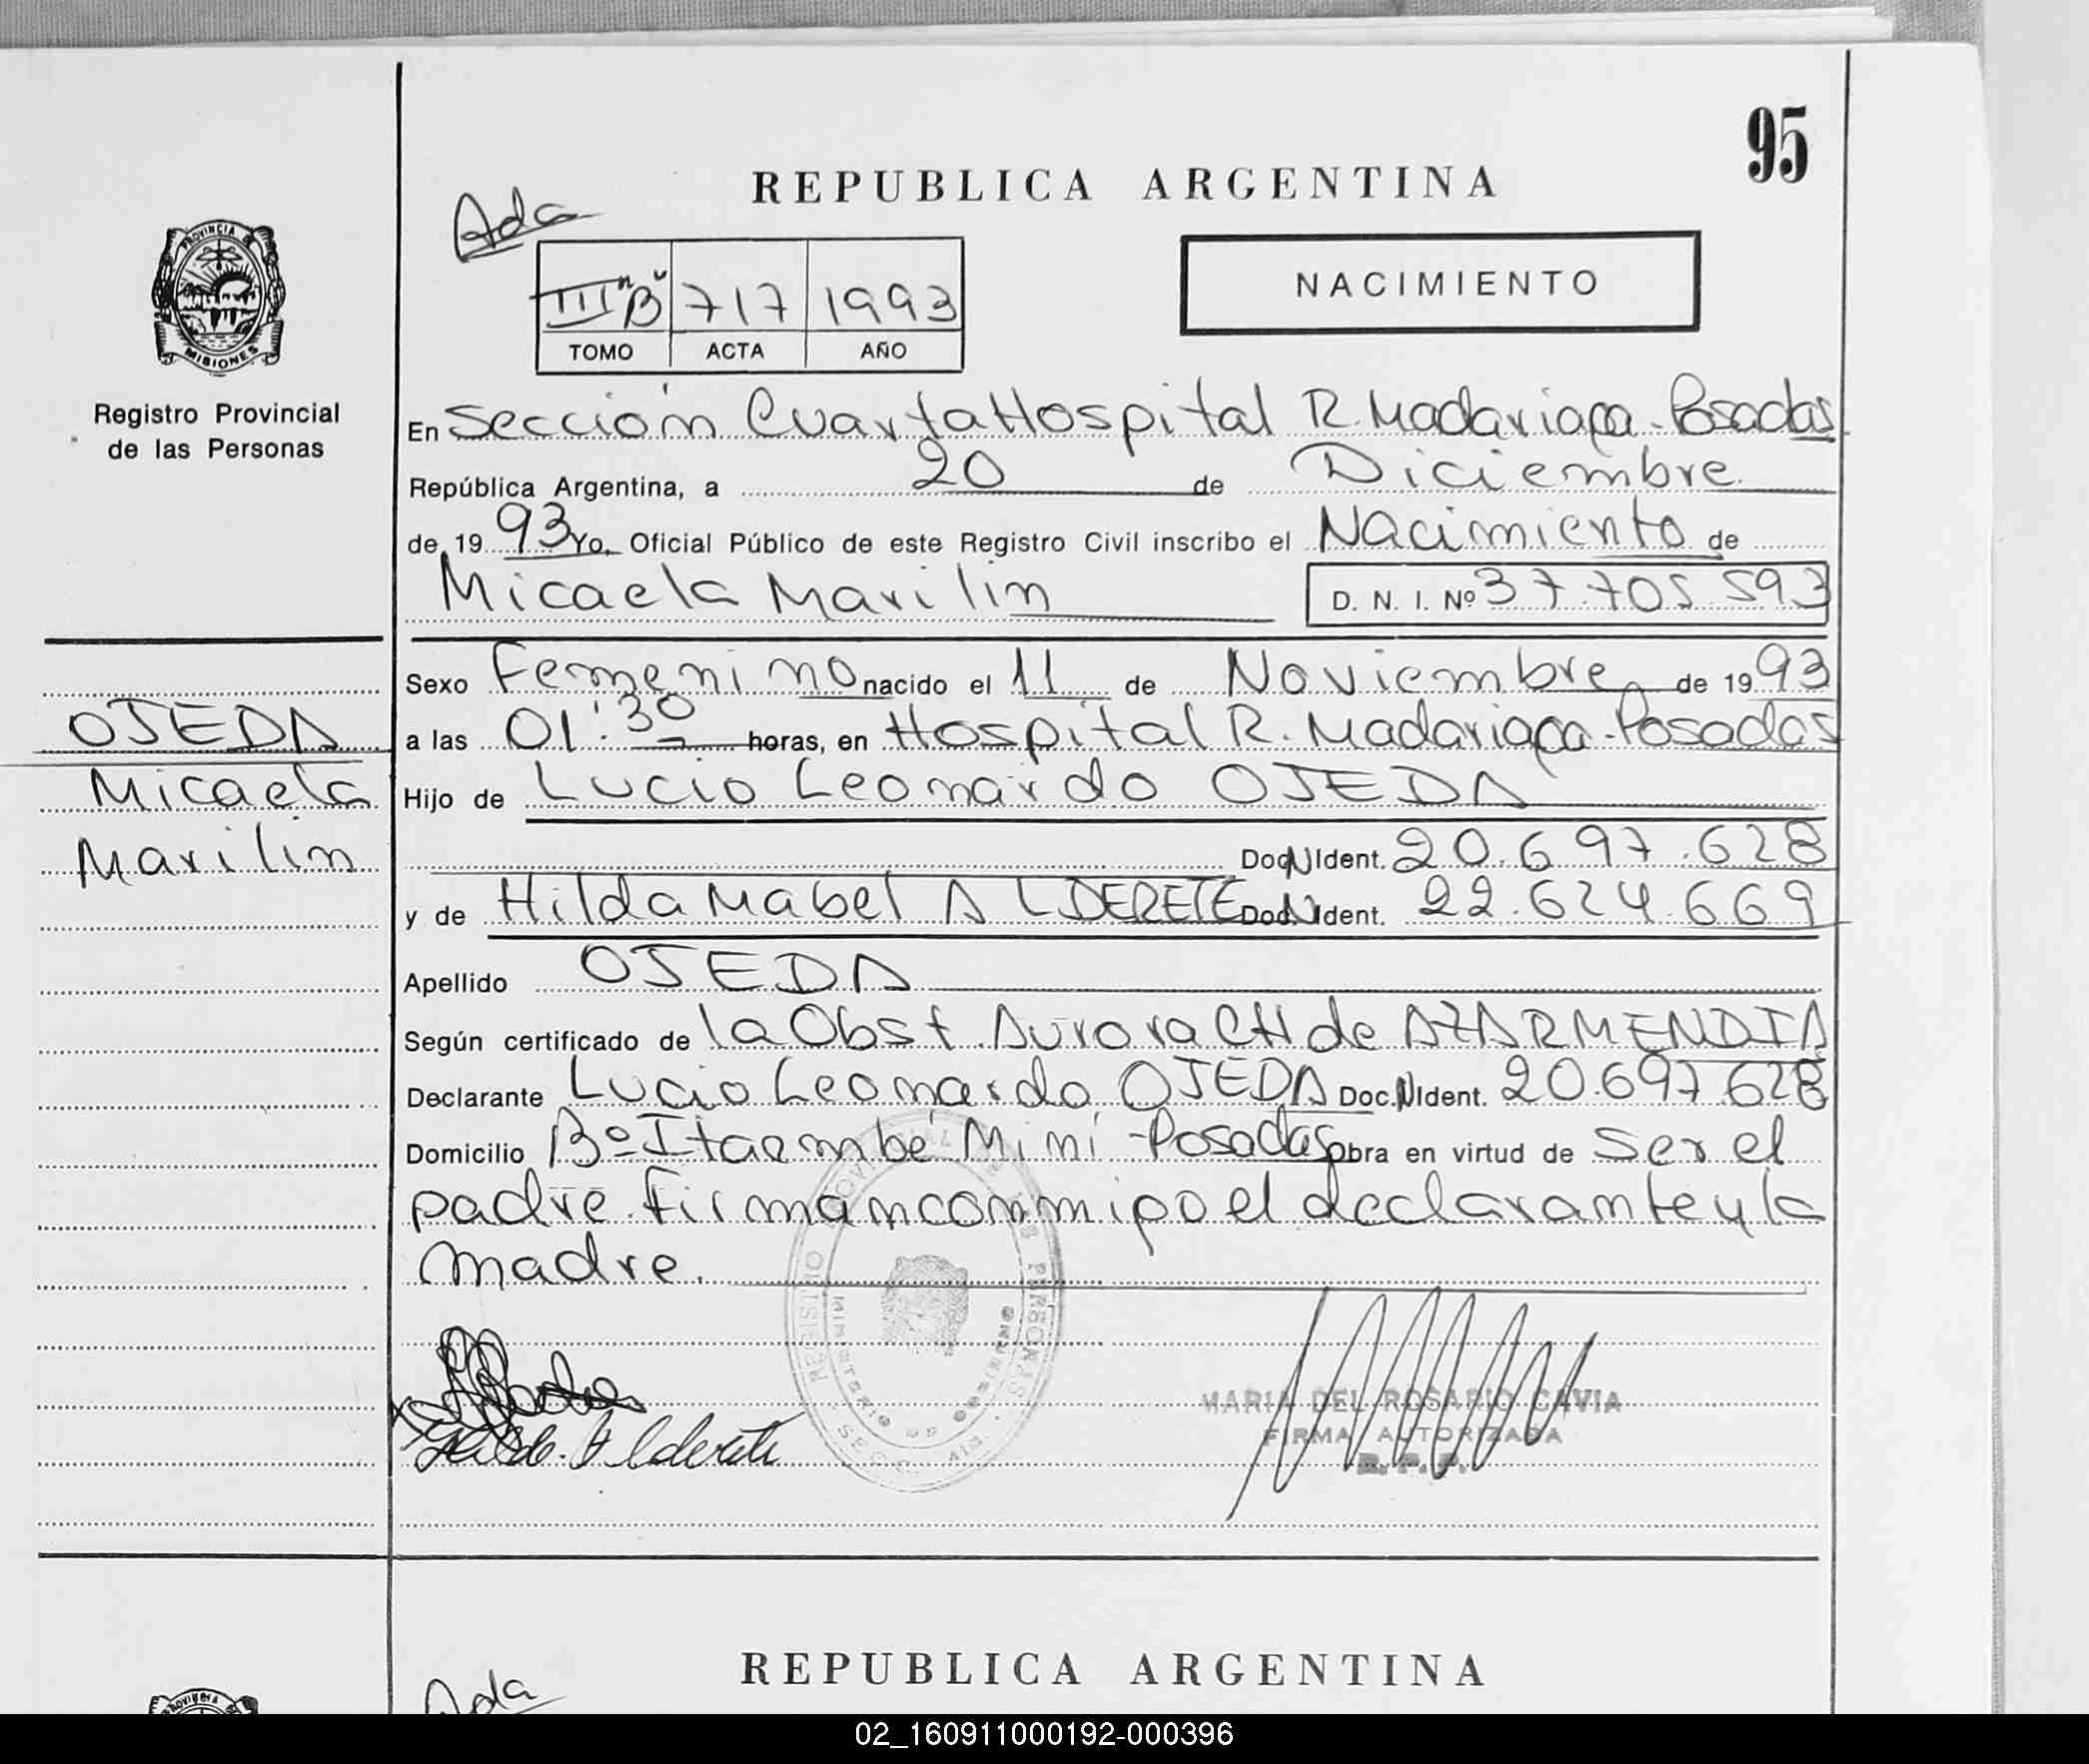 95
REPUBLICA ARGENTINA
Ada
NACIMIENTO
III "B" 717 1993
TOMO ACTA AÑO
PROVINCIA DE
MISIONES
Registro Provincial
de las Personas
En Sección Cuarta Hospital R. Madariaga - Posadas
República Argentina, a 20 de Diciembre
de 1993 Yo, Oficial Público de este Registro Civil inscribo el Nacimiento de
Micaela Marilin D. N. I. Nº 37.705.593
Sexo Femenino nacido el 11 de Noviembre de 1993
OJEDA
Micaela
Marilin
a las 01:30 horas, en Hospital R. Madariaga - Posadas
Hijo de Lucio Leonardo OJEDA
Doc. N Ident. 20.697.628
y de Hilda Mabel ALDERETE Doc. N Ident. 22.624.669
Apellido OJEDA
Según certificado de la Obst. Aurora CH de AZARMENDIA
Declarante Lucio Leonardo OJEDA Doc. N Ident. 20.697.628
Domicilio Bº Itaembé Mini - Posadas obra en virtud de ser el
padre. Firman conmigo el declarante y la
madre.
Hilda Alderete
MARIA DEL ROSARIO CAVIA
FIRMA AUTORIZADA
R. P. P.
REPUBLICA ARGENTINA
Ada
02_160911000192-000396